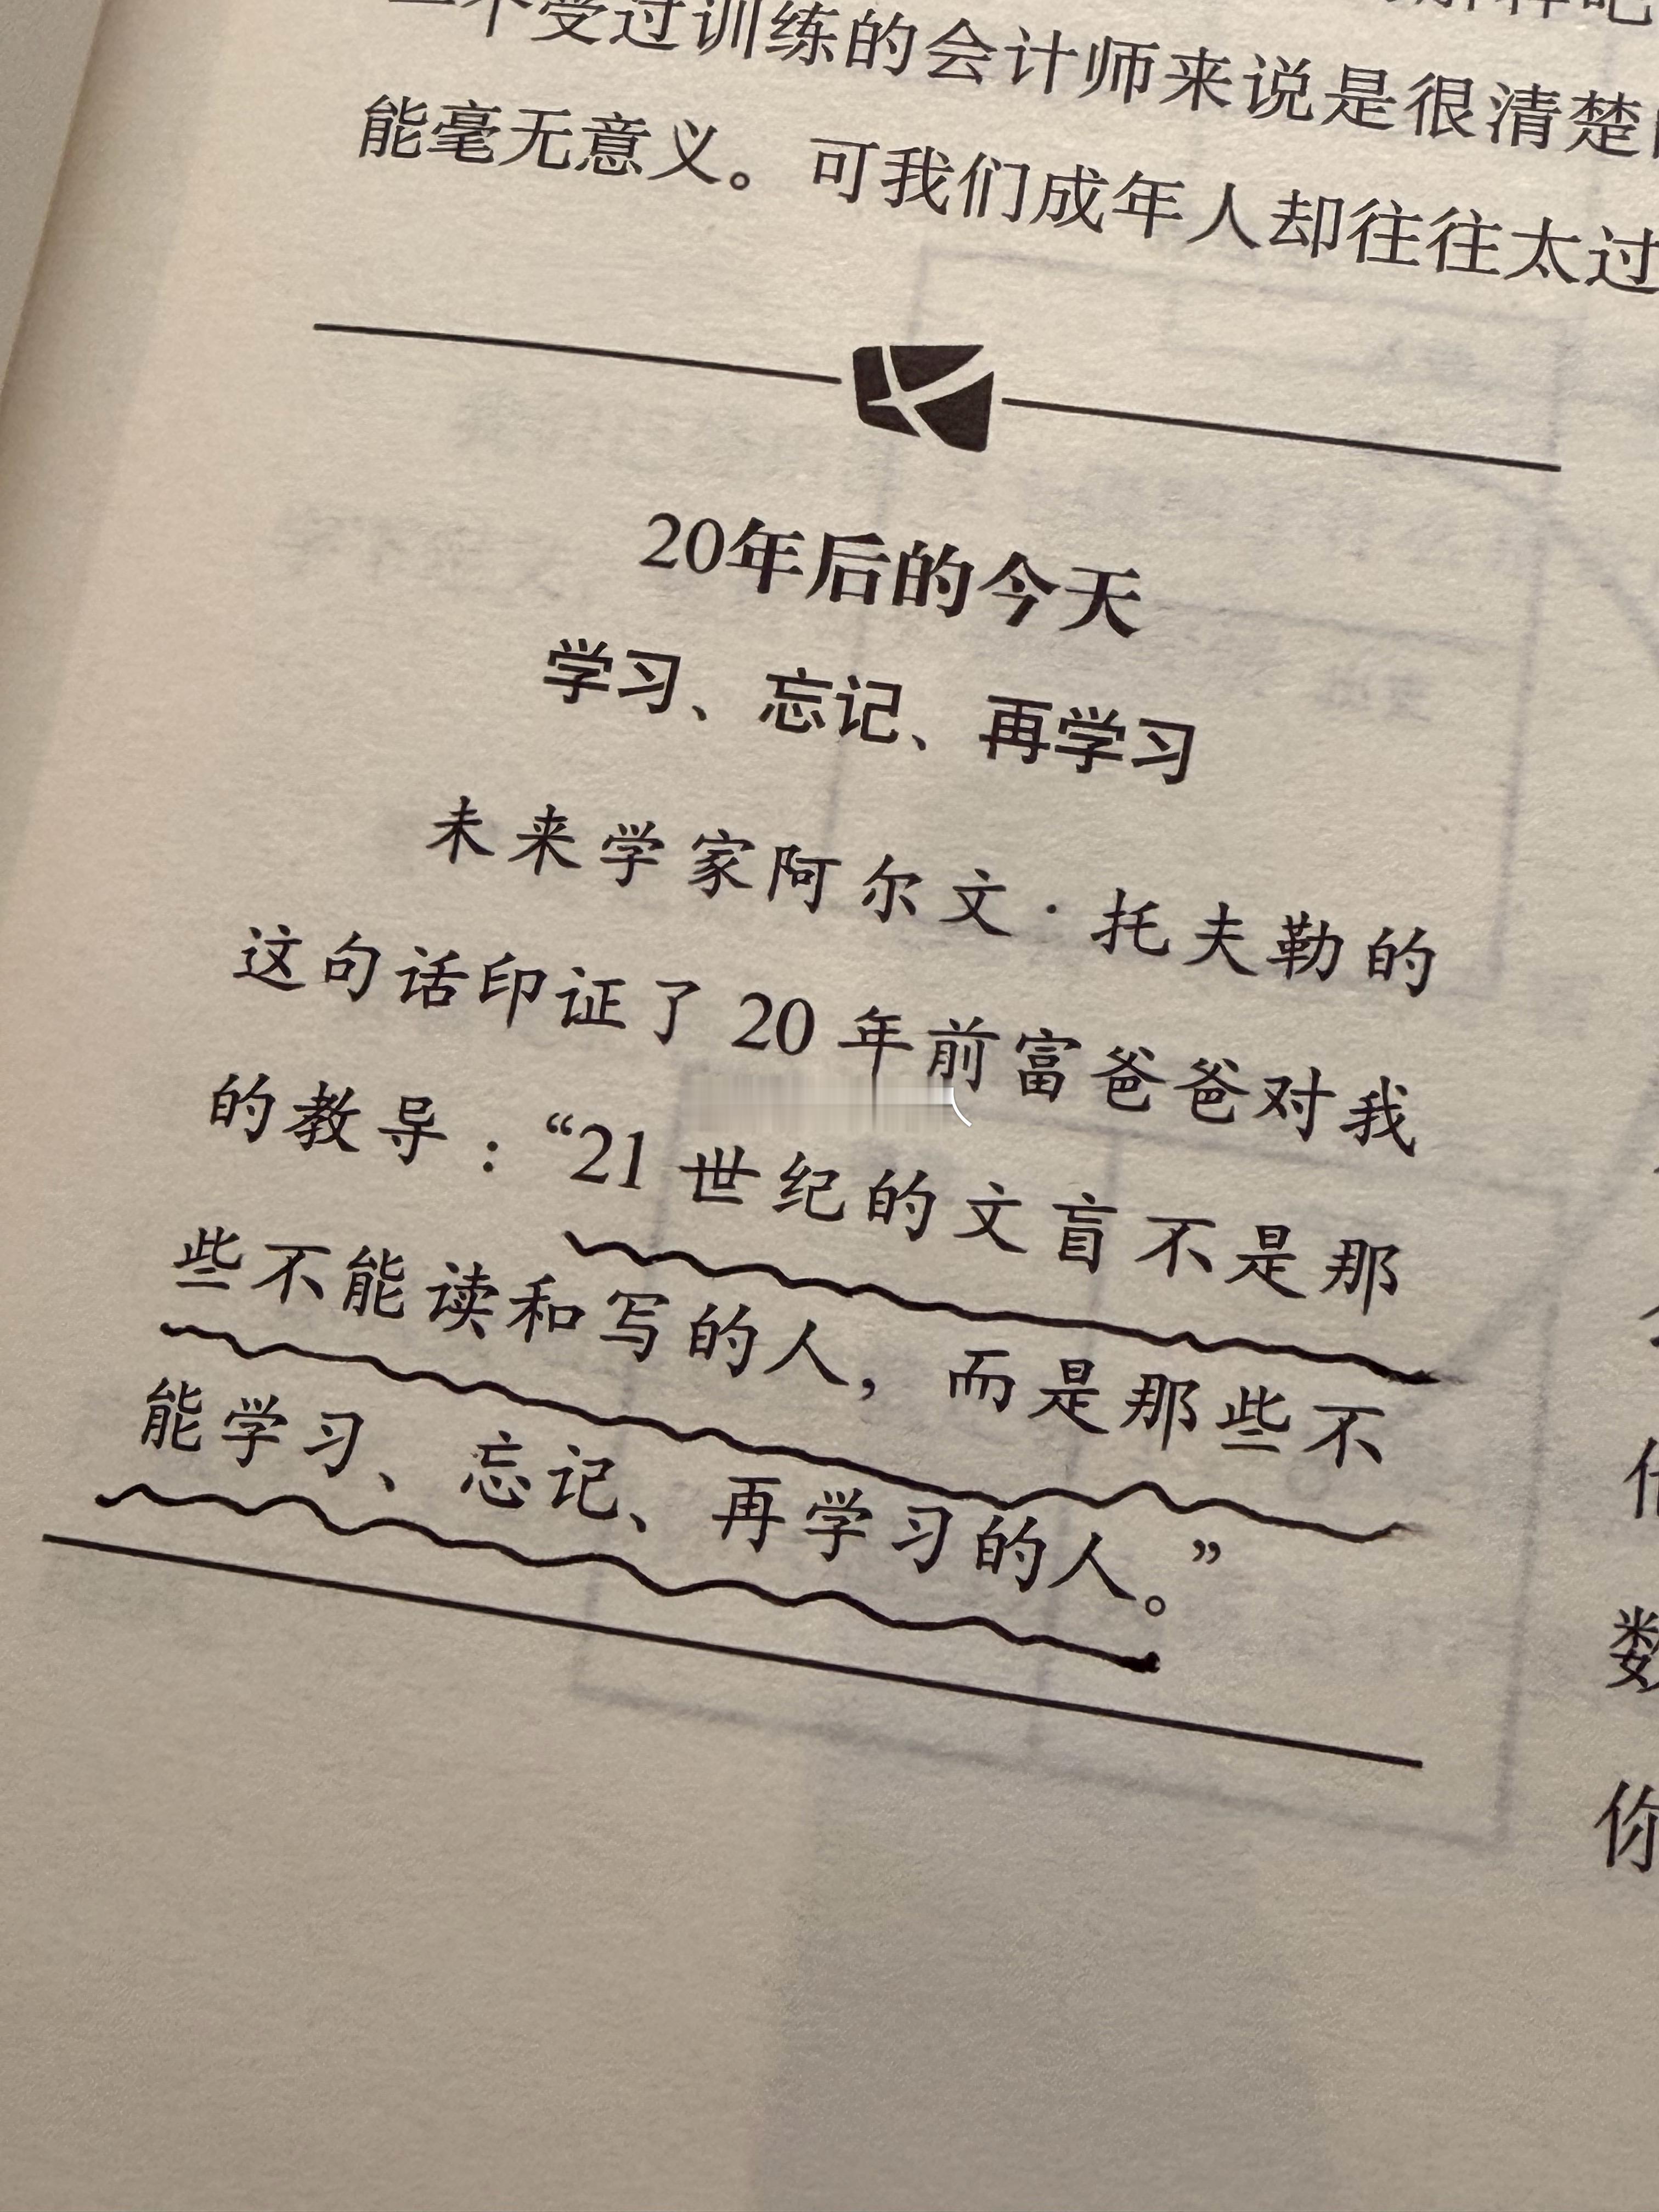 一个受过训练的会计师来说是很清楚
能毫无意义。可我们成年人却往往太过
20年后的今天
学习、忘记、再学习
未来学家阿尔文·托夫勒的
这句话印证了 20 年前富爸爸对我
的教导：“21 世纪的文盲不是那
些不能读和写的人，而是那些不
能学习、忘记、再学习的人。”
数
你